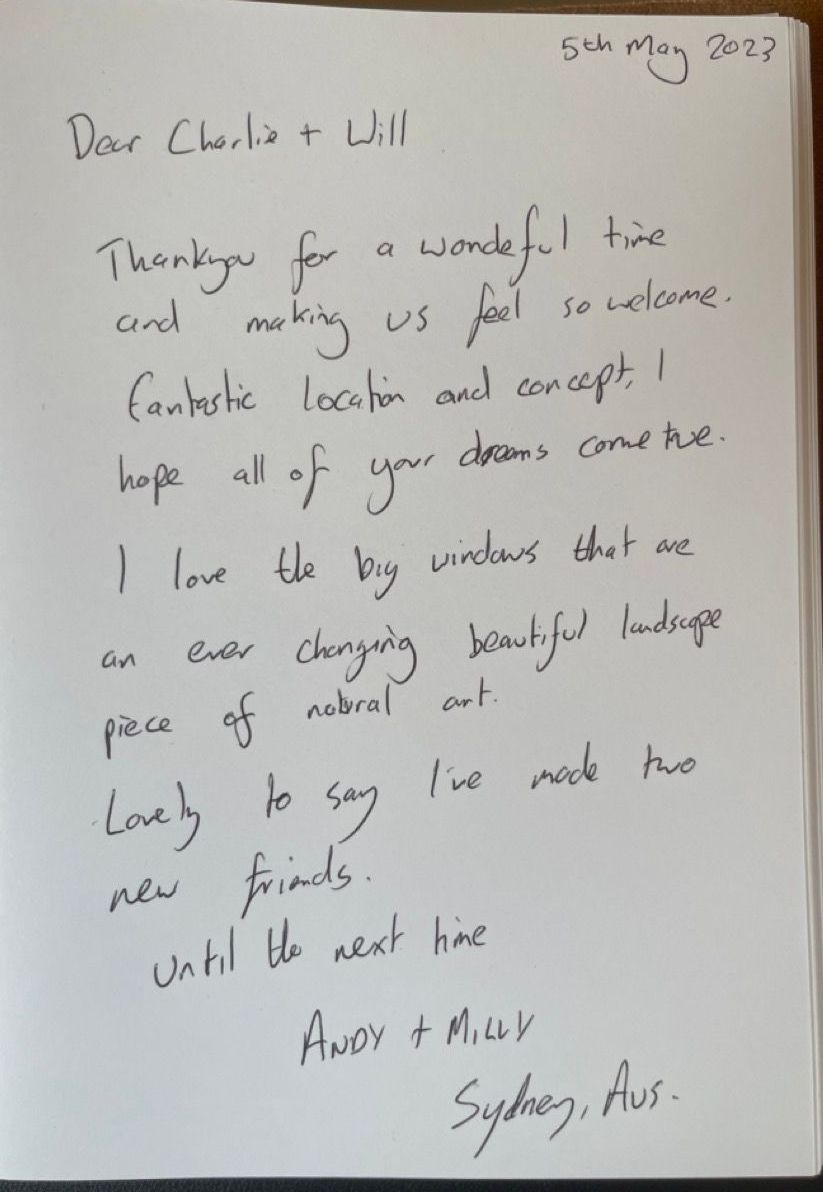 5th May 2023
Dear Charlie + Will
Thankyou for a wondeful time
and making us feel so welcome.
fantastic location and concept, I
hope all of your dreams come true.
I love the big windows that are
an ever changing beautiful landscape
piece of natural art.
Lovely to say I've made two
new friends.
until the next time
ANDY + MILLY
Sydney, Aus.